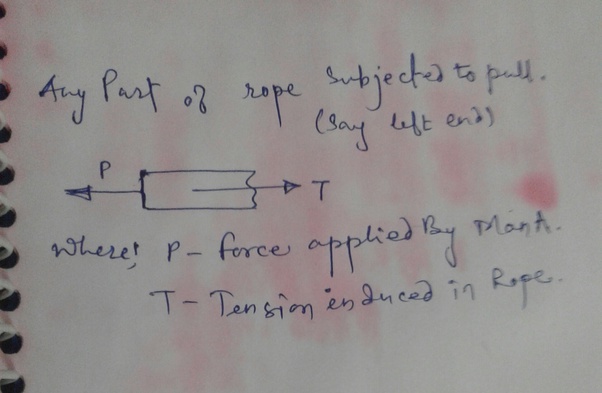 Any Part of rope Subjected to pull.
(Say left end)
P
T
Where! P - force applied By Man A.
T - Tension induced in Rope.